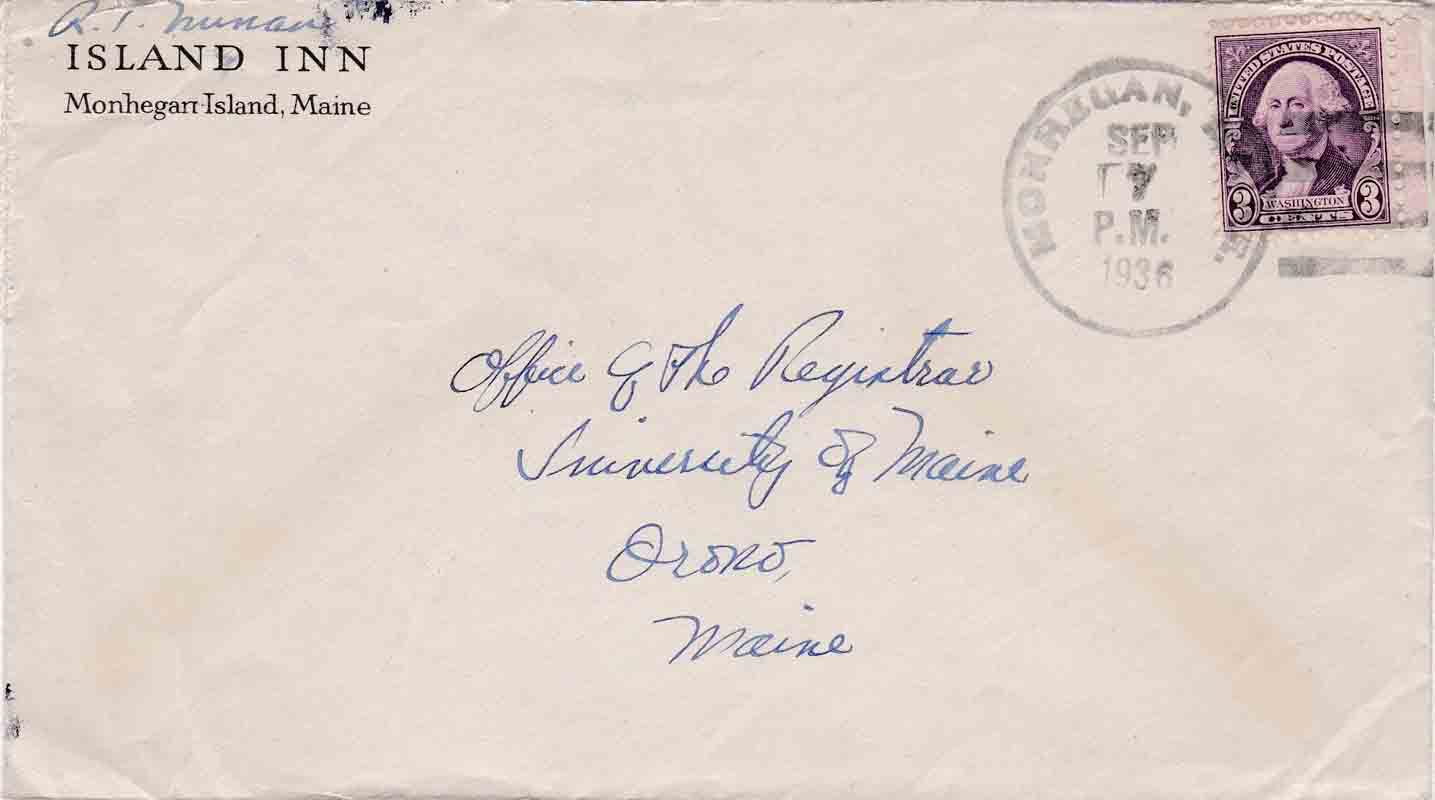 R. T. Nunan
ISLAND INN
Monhegan Island, Maine
MONHEGAN,
SEP
7
P.M.
1936
UNITED STATES POSTAGE
3 WASHINGTON 3
CENTS
Office of the Registrar
University of Maine
Orono,
Maine